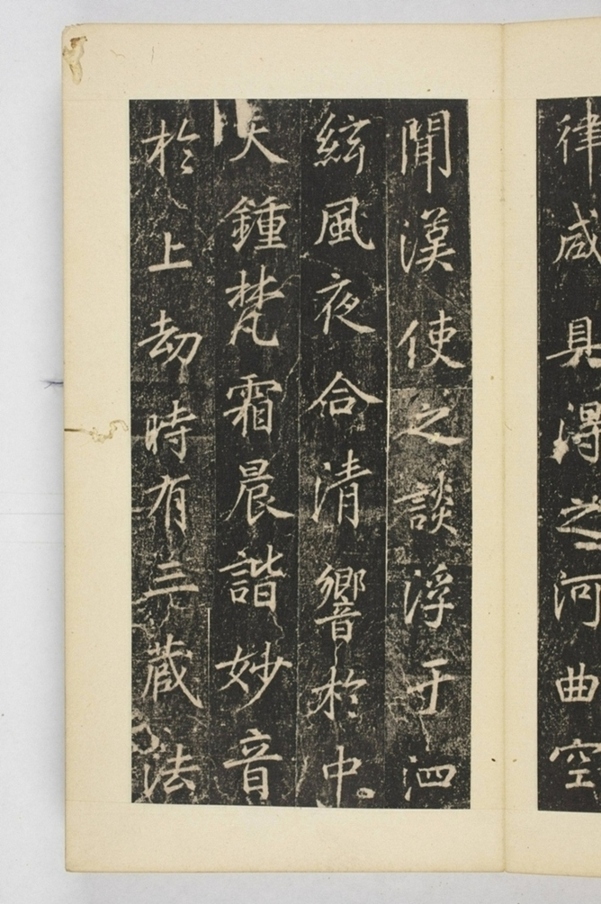 律咸具得之河曲空
聞漢使之談浮于泗
絃風夜合清響於中
天鍾梵霜晨諧妙音
於上劫時有三藏法